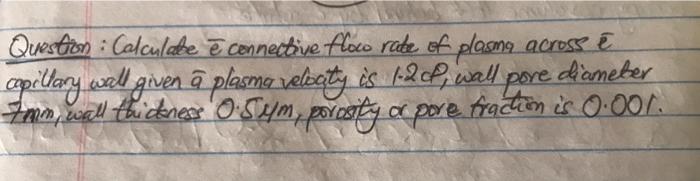 Question : Calculate ē connective flow rate of plasma across ē
capillary wall given ā plasma velocity is 1.2 cP, wall pore diameter
7mm, wall thickness 0.5 µm, porosity or pore fraction is 0.001.